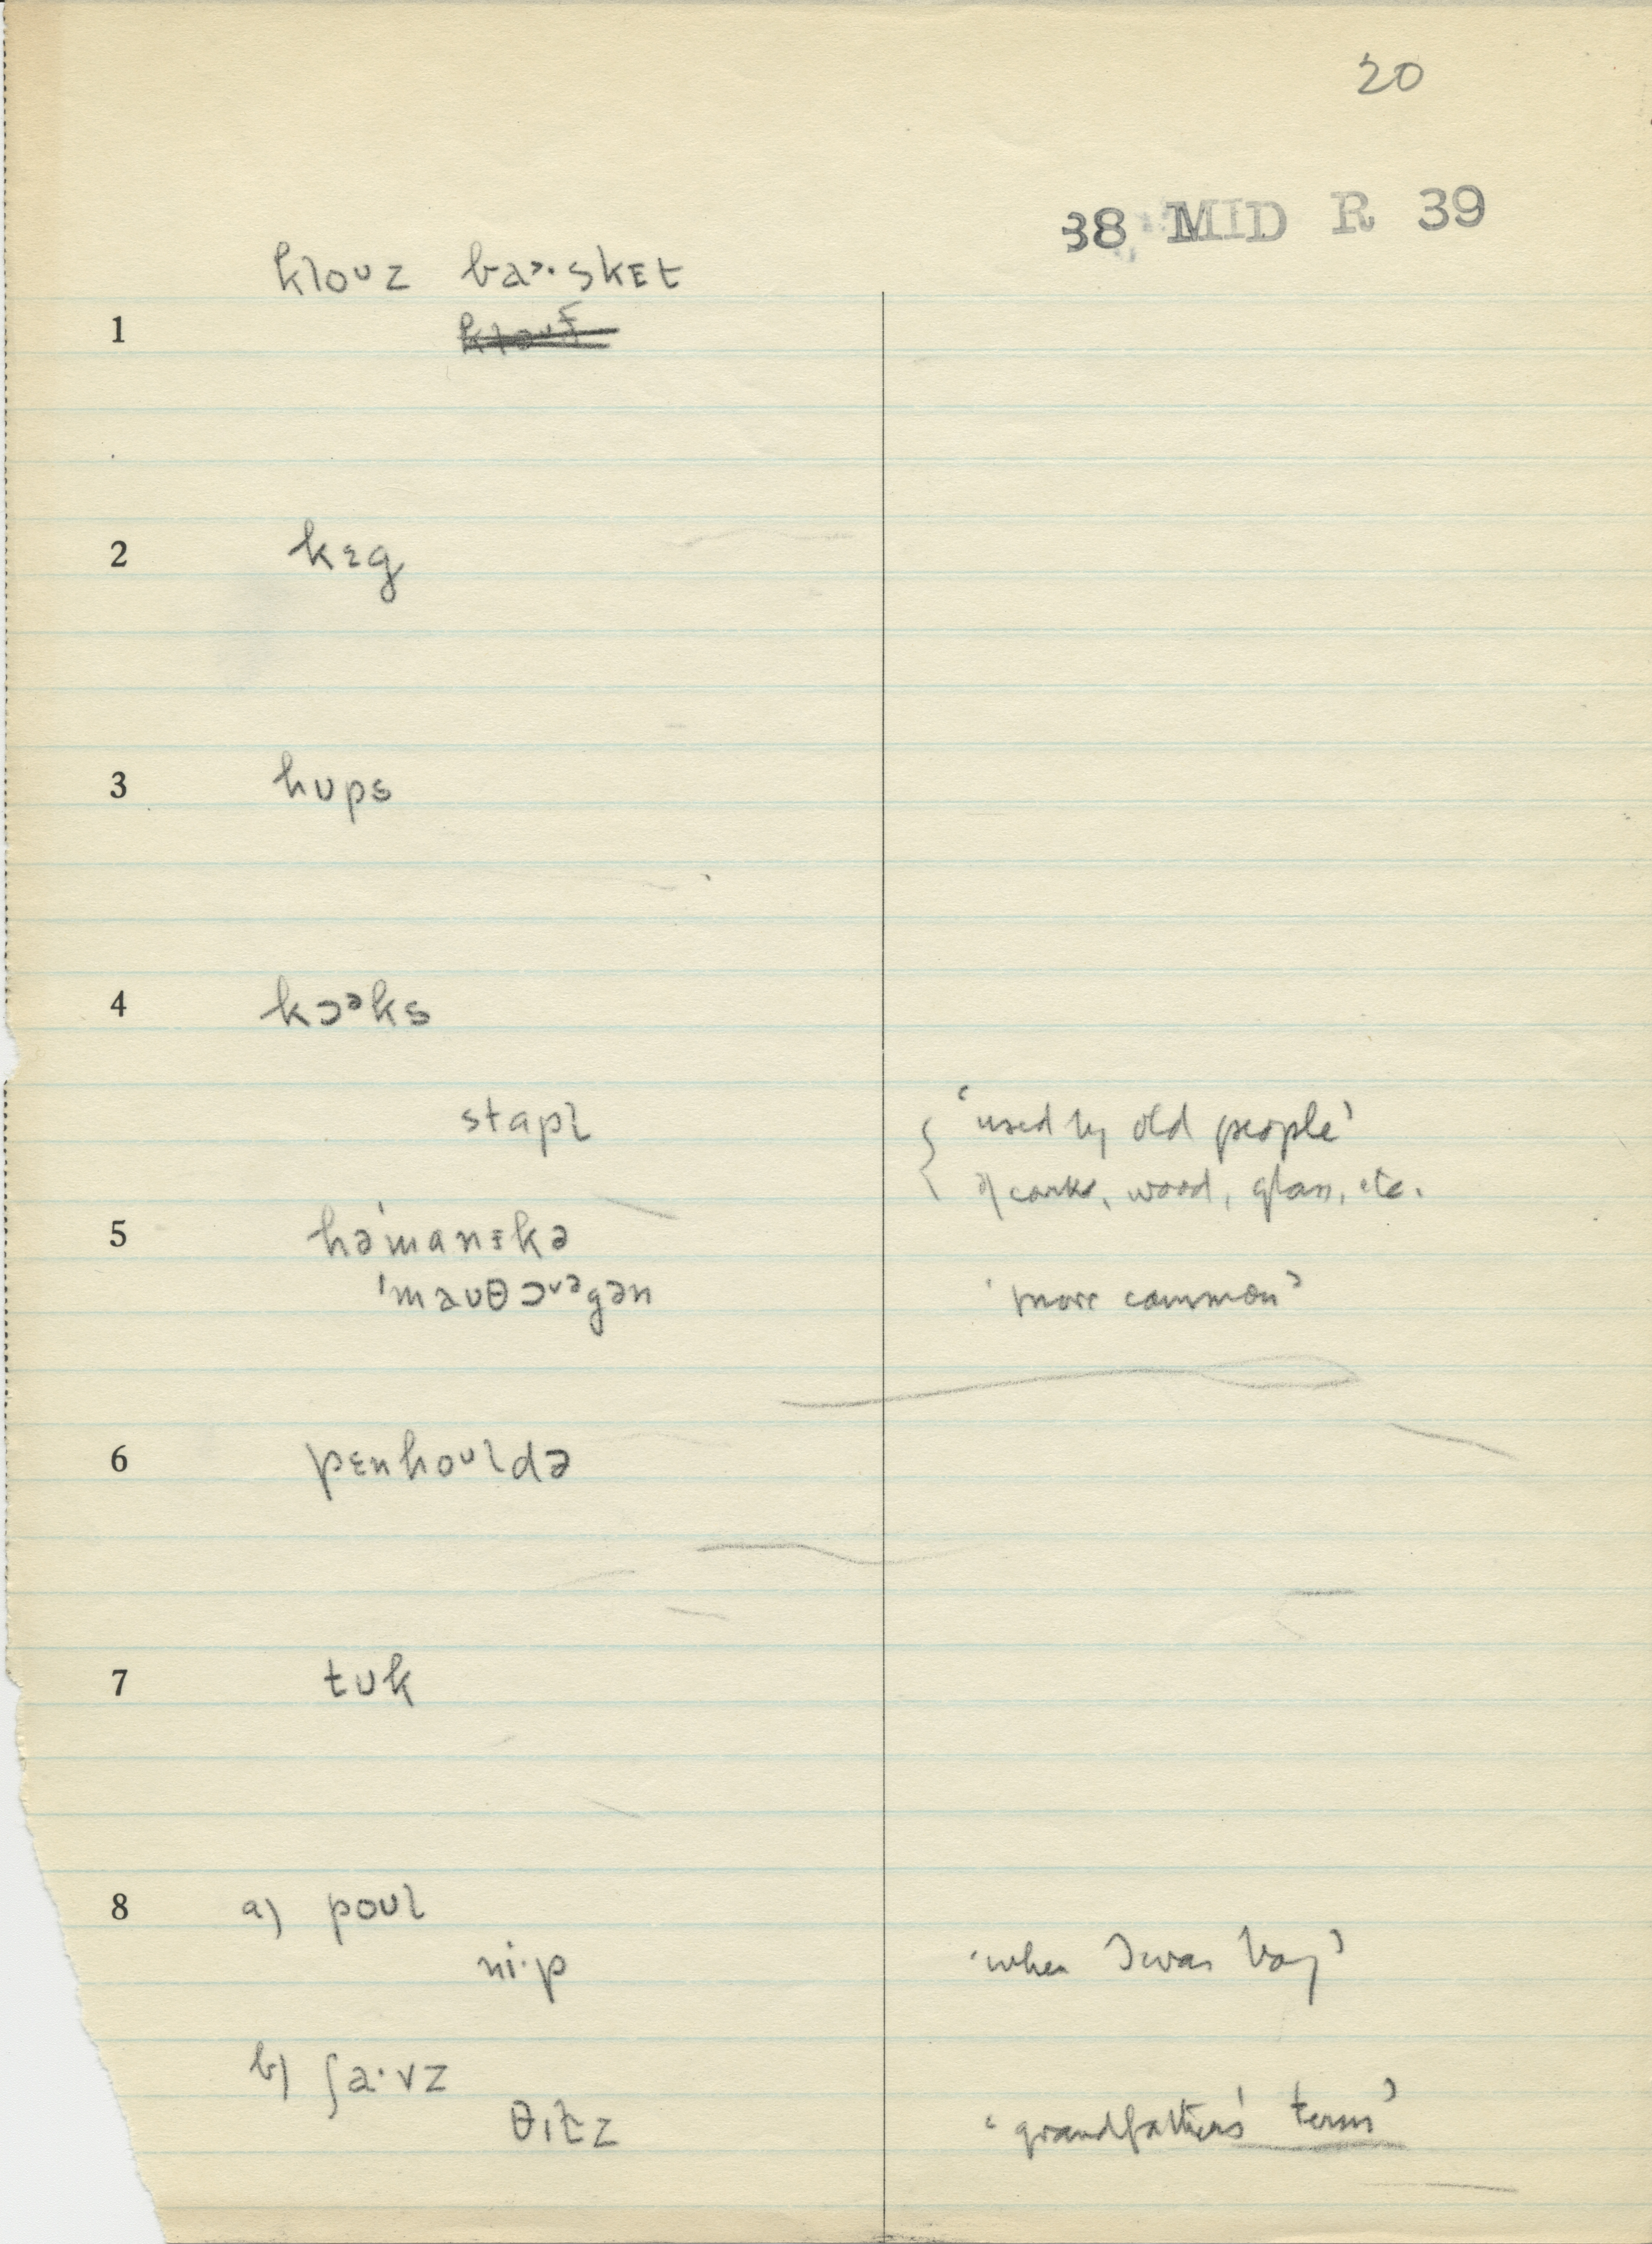 20
38 MID R 39
kloᴜz ba˃·skɛt
1
2 kɛg
3 hᴜps
4 kɔᵊks
stapl { 'used by old people'
of corks, wood, glass, etc.
5 hə'manɪkə
'maᴜθɔᵛᵊgən 'more common'
6 pɛnhoᴜldə
7 tᴜk
8 a) poᴜl
ni·p 'when I was boy'
b) ʃa·vz
θɪlz 'grandfather's term'